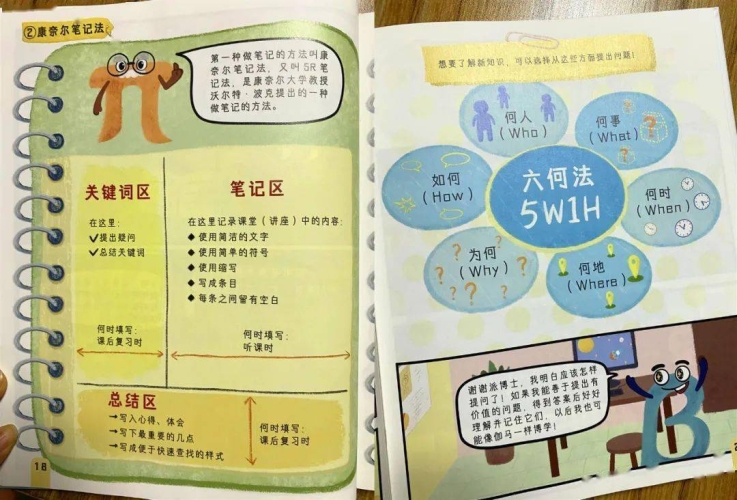 ②康奈尔笔记法:
第一种做笔记的方法叫康
奈尔笔记法，又叫5R笔
记法，是康奈尔大学教授
沃尔特·波克提出的一种
做笔记的方法。
关键词区
在这里:
✓提出疑问
✓总结关键词
何时填写:
课后复习时
笔记区
在这里记录课堂（讲座）中的内容:
◆使用简洁的文字
◆使用简单的符号
◆使用缩写
◆写成条目
◆每条之间留有空白
何时填写:
听课时
总结区
→写入心得、体会
→写下最重要的几点
→写成便于快速查找的样式
何时填写:
课后复习时
18
想要了解新知识，可以选择从这些方面提出问题!
何人
(Who)
何事
(What)
如何
(How)
六何法
5W1H
何时
(When)
为何
(Why)
何地
(Where)
谢谢派博士，我明白应该怎样
提问了！如果我能善于提出有
价值的问题，得到答案后好好
理解并记住它们，以后我也可
能像伽马一样博学!